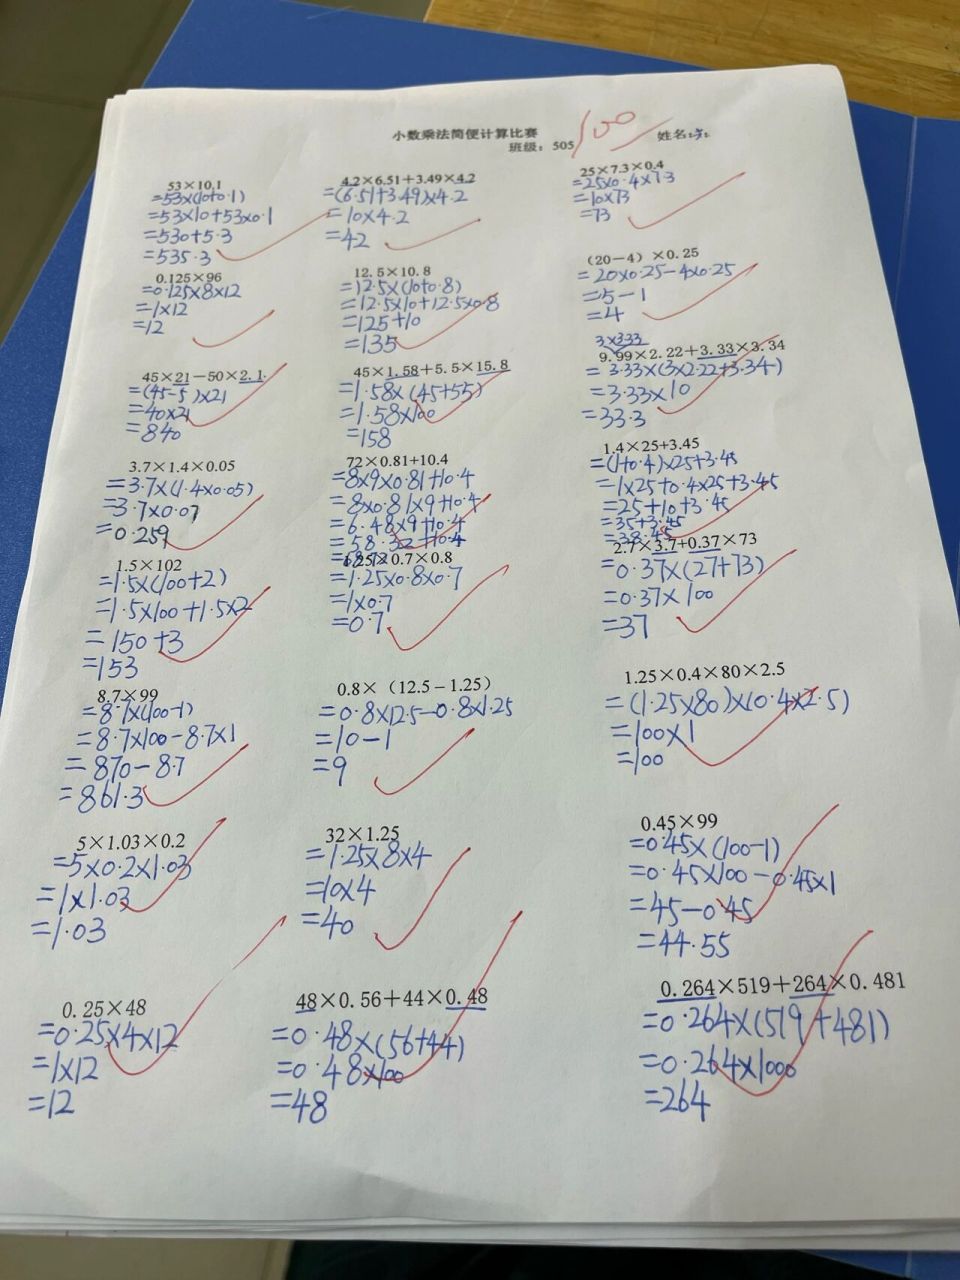 小数乘法简便计算比赛
班级：505
100
姓名：
53×10.1
=53×(10+0.1)
=53×10+53×0.1
=530+5.3
=535.3
4.2×6.51+3.49×4.2
=(6.51+3.49)×4.2
=10×4.2
=42
25×7.3×0.4
=25×0.4×7.3
=10×73
=73
0.125×96
=0.125×8×12
=1×12
=12
12.5×10.8
=12.5×(10+0.8)
=12.5×10+12.5×0.8
=125+10
=135
(20-4)×0.25
=20×0.25-4×0.25
=5-1
=4
45×21-50×2.1
=(45-5)×21
=40×21
=840
45×1.58+5.5×15.8
=1.58×(45+55)
=1.58×100
=158
3×3.33
9.99×2.22+3.33×3.34
=3.33×(3×2.22+3.34)
=3.33×10
=33.3
3.7×1.4×0.05
=3.7×(1.4×0.05)
=3.7×0.07
=0.259
72×0.81+10.4
=8×9×0.81+10.4
=8×0.81×9+10.4
=6.48×9+10.4
=58.32+10.4
1.4×25+3.45
=(1+0.4)×25+3.45
=1×25+0.4×25+3.45
=25+10+3.45
=35+3.45
=38.45
1.5×102
=1.5×(100+2)
=1.5×100+1.5×2
=150+3
=153
1.25×0.7×0.8
=1.25×0.8×0.7
=1×0.7
=0.7
2.7×3.7+0.37×73
=0.37×(27+73)
=0.37×100
=37
8.7×99
=8.7×(100-1)
=8.7×100-8.7×1
=870-8.7
=861.3
0.8×(12.5-1.25)
=0.8×12.5-0.8×1.25
=10-1
=9
1.25×0.4×80×2.5
=(1.25×80)×(0.4×2.5)
=100×1
=100
5×1.03×0.2
=5×0.2×1.03
=1×1.03
=1.03
32×1.25
=1.25×8×4
=10×4
=40
0.45×99
=0.45×(100-1)
=0.45×100-0.45×1
=45-0.45
=44.55
0.25×48
=0.25×4×12
=1×12
=12
48×0.56+44×0.48
=0.48×(56+44)
=0.48×100
=48
0.264×519+264×0.481
=0.264×(519+481)
=0.264×1000
=264